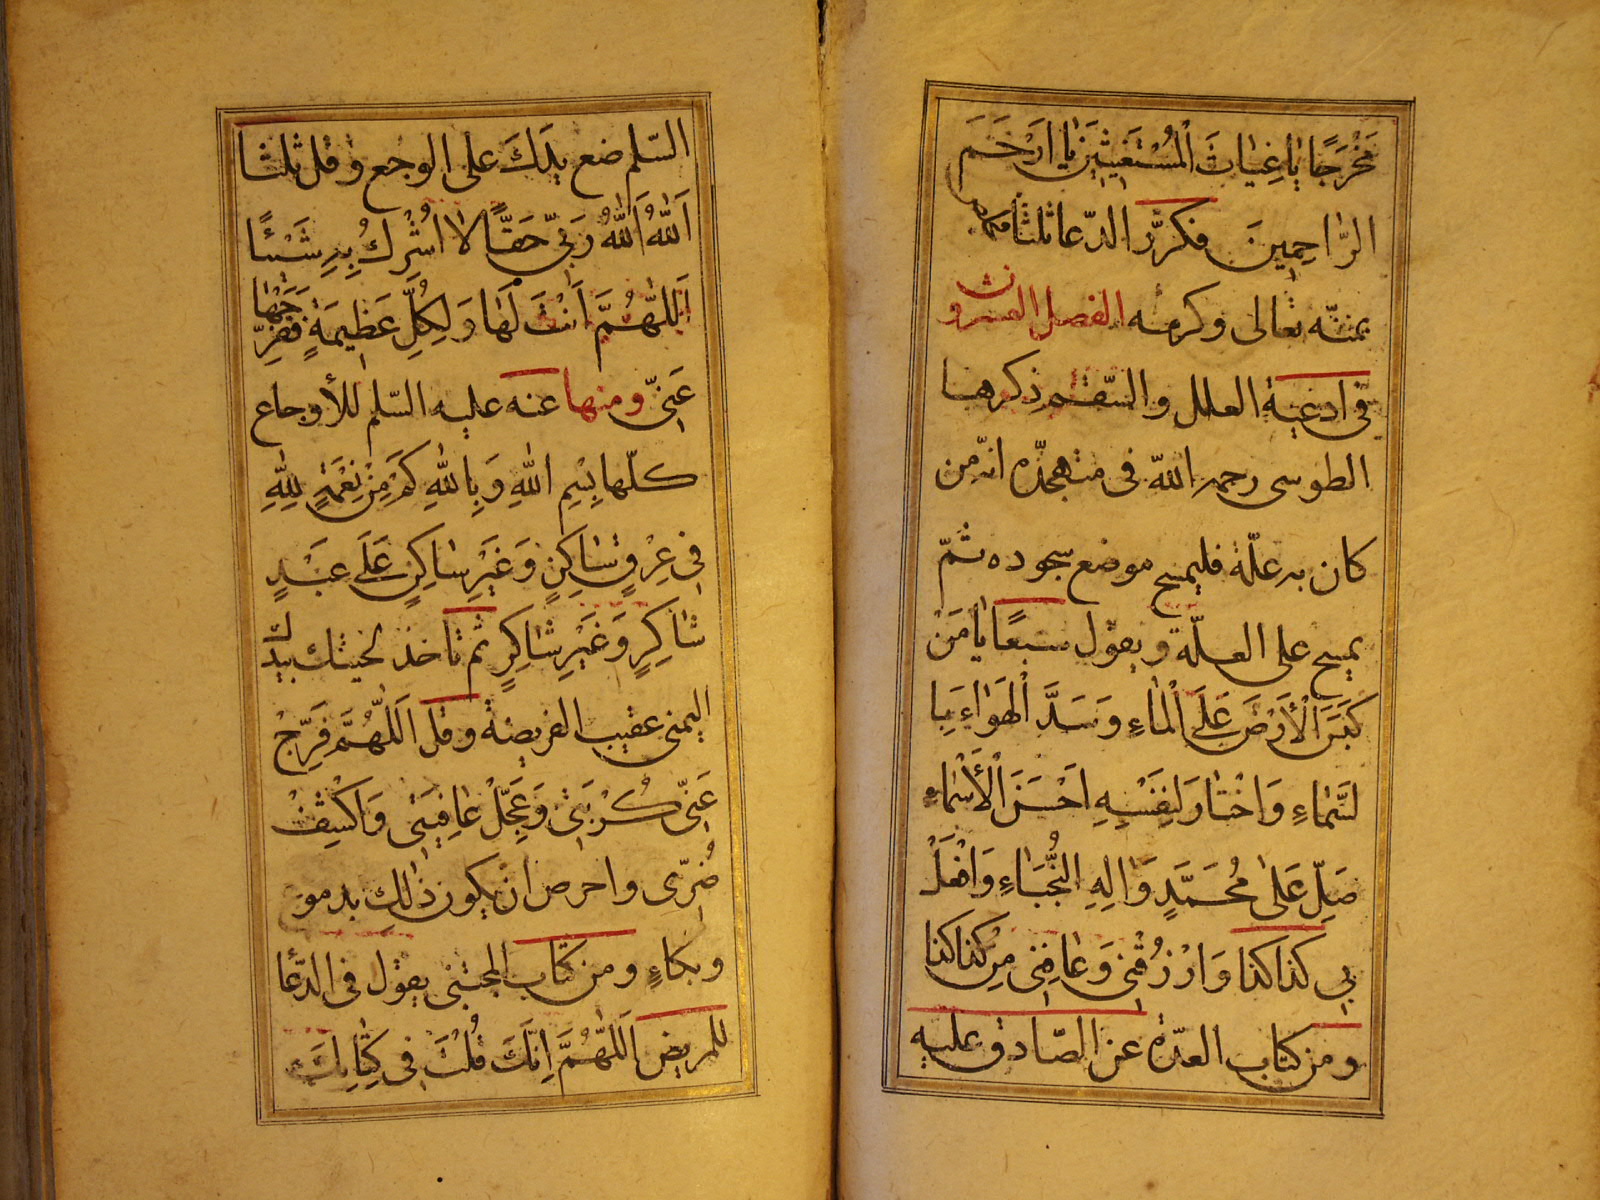 مَخْرَجًا يَا غِيَاثَ الْمُسْتَغِيثِينَ يَا اَرْحَمَ
الرَّاحِمِينَ فكرّر الدّعا ثلثا
بمنّه تعالى وكرمه الفصل العشرون
فى ادعية العلل والسّقم ذكرها
الطوسى رحمه اللّه فى متهجّده انّ من
كان به علّة فليمسح موضع سجوده ثمّ
يمسح على العلّة ويقول سبعًا يَا مَنْ
كَبَسَ الْأَرْضَ عَلَى الْمَاءِ وَسَدَّ الْهَوَاءَ بِا
لسَّمَاءِ وَاخْتَارَ لِنَفْسِهِ اَحْسَنَ الْأَسْمَاءِ
صَلِّ عَلَى مُحَمَّدٍ وَالِهِ النُّجَبَاءِ وَافْعَلْ
بِى كذا كذا وَارْزُقْنِى وَعَافِنِى مِنْ كذا كذا
ومن كتاب العدّة عن الصّادق عليه
السّلم ضع يدك على الوجع وقل ثلثا
اَللهُ اَللهُ رَبِّى حَقًّا لَا اُشْرِكُ بِهِ شَيْئًا
اَللّٰهُمَّ اَنْتَ لَهَا وَلِكُلِّ عَظِيمَةٍ فَفَرِّجْهَا
عَنِّى ومنها عنه عليه السّلم للأوجاع
كلّها بِسْمِ اللهِ وَبِاللهِ كَمْ مِنْ نِعْمَةٍ لِلّهِ
فِى عِرْقٍ سَاكِنٍ وَغَيْرِ سَاكِنٍ عَلَى عَبْدٍ
شَاكِرٍ وَغَيْرِ شَاكِرٍ ثم تأخذ لحيتك بيدك
اليمنى عقيب الفريضة وقل اَللّٰهُمَّ فَرِّجْ
عَنِّى كُرْبَتِى وَعَجِّلْ عَافِيَتِى وَاكْشِفْ
ضُرِّى واحرص ان يكون ذلك بدمو
وبكاءٍ ومن كتاب المجتنى يقول فى الدّعا
للمريض اَللّٰهُمَّ اِنَّكَ قُلْتَ فِى كِتَابِكَ